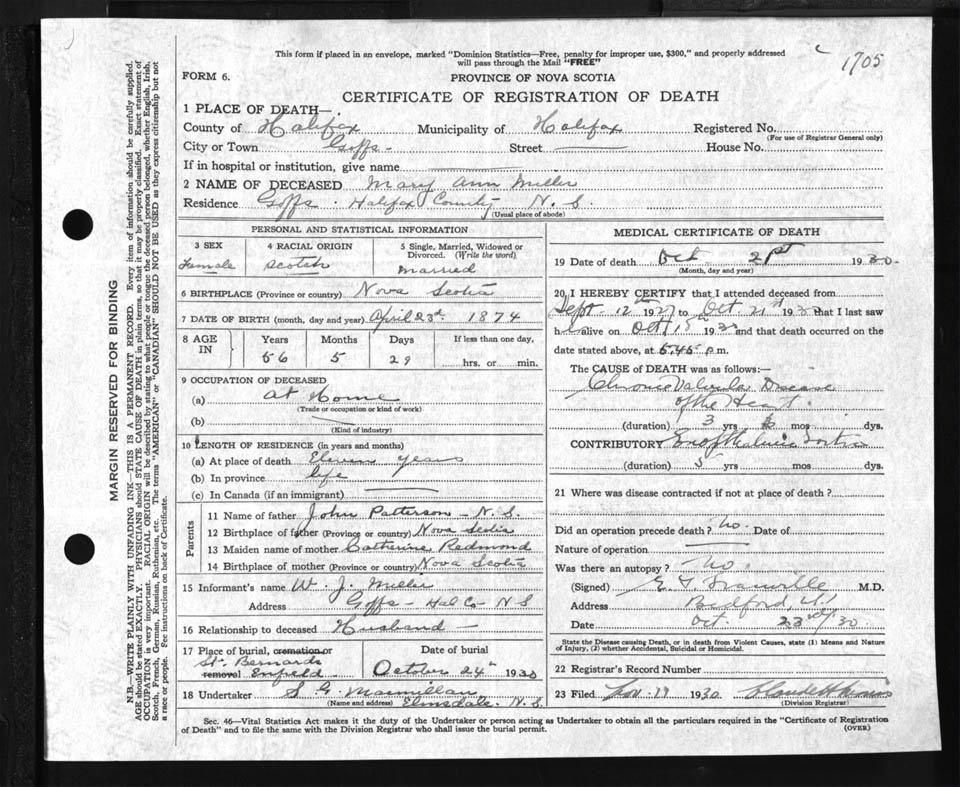 1705
This form if placed in an envelope, marked "Dominion Statistics—Free, penalty for improper use, $300," and properly addressed
will pass through the Mail "FREE"
FORM 6.
PROVINCE OF NOVA SCOTIA
CERTIFICATE OF REGISTRATION OF DEATH
1 PLACE OF DEATH—
County of Halifax Municipality of Halifax Registered No.
(For use of Registrar General only)
City or Town Goffs - Street House No.
If in hospital or institution, give name
2 NAME OF DECEASED Mary Ann Miller
Residence Goffs - Halifax County N. S.
(Usual place of abode)
PERSONAL AND STATISTICAL INFORMATION
3 SEX 4 RACIAL ORIGIN 5 Single, Married, Widowed or
Divorced. (Write the word)
Female Scotch Married
6 BIRTHPLACE (Province or country) Nova Scotia
7 DATE OF BIRTH (month, day and year) April 23rd 1874
8 AGE IN Years Months Days If less than one day,
56 5 29 hrs. or min.
9 OCCUPATION OF DECEASED
(a) At Home
(Trade or occupation or kind of work)
(b)
(Kind of industry)
10 LENGTH OF RESIDENCE (in years and months)
(a) At place of death Eleven years
(b) In province life
(c) In Canada (if an immigrant)
Parents
11 Name of father John Patterson - N.S.
12 Birthplace of father (Province or country) Nova Scotia
13 Maiden name of mother Catherine Redmond
14 Birthplace of mother (Province or country) Nova Scotia
15 Informant's name W. J. Miller
Address Goffs - Hal Co - N S
16 Relationship to deceased Husband -
17 Place of burial, cremation or Date of burial
St. Bernards
removal Enfield October 24th 1930
18 Undertaker S G Macmillan
(Name and address) Elmsdale. N.S.
MEDICAL CERTIFICATE OF DEATH
19 Date of death Oct 21st 1930
(Month, day and year)
20 I HEREBY CERTIFY that I attended deceased from
Sept 12th 1927 to Oct. 21st 1930 that I last saw
her alive on Oct 15 1930 and that death occurred on the
date stated above, at 5.45 p.m.
The CAUSE of DEATH was as follows:—
Chronic Valvular Disease
of the Heart.
(duration) 3 yrs mos dys.
CONTRIBUTORY Exophthalmic Goitre
(duration) 5 yrs mos dys.
21 Where was disease contracted if not at place of death?
Did an operation precede death? No. Date of
Nature of operation
Was there an autopsy? No.
(Signed) E G Granville M.D.
Address Bedford,
Date Oct. 23rd 30
State the Disease causing Death, or in death from Violent Causes, state (1) Means and Nature
of Injury, (2) whether Accidental, Suicidal or Homicidal.
22 Registrar's Record Number
23 Filed Nov 19 1930
(Division Registrar)
Sec. 46—Vital Statistics Act makes it the duty of the Undertaker or person acting as Undertaker to obtain all the particulars required in the "Certificate of Registration
of Death" and to file the same with the Division Registrar who shall issue the burial permit.
(OVER)
MARGIN RESERVED FOR BINDING
N.B.—WRITE PLAINLY WITH UNFADING INK—THIS IS A PERMANENT RECORD. Every item of information should be carefully supplied.
AGE should be stated EXACTLY. PHYSICIANS should STATE CAUSE OF DEATH in plain terms, so that it may be properly classified. Exact statement of
OCCUPATION is very important. RACIAL ORIGIN will be described by stating to what people or tongue the deceased person belonged, whether English, Irish,
Scotch, French, German, Russian, Ruthenian, etc. The terms "AMERICAN" or "CANADIAN" SHOULD NOT BE USED as they express citizenship but not
a race or people. Fee instructions on back of Certificate.